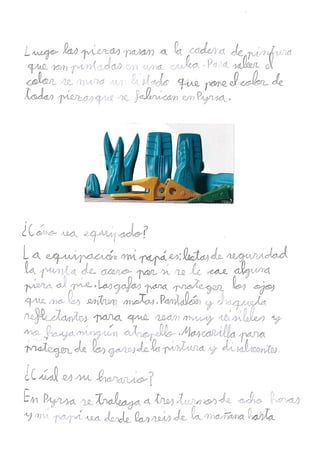 Luego las piezas pasan a la cadena de pintura
que son pintadas en una cuba. Para saber el
color se mira un listado que pone el color de
todas piezas que se fabrican en Pyrsa.
¿Cómo va equipado?
La equipación mi papá es: botas de seguridad
la punta de acero por si se le cae alguna
pieza al pie. Las gafas para proteger los ojos
que no les entren motas. Pantalón y chaqueta
reflectantes para que sean muy visibles y
no haya ningún atropello. Mascarilla para
proteger de los gases de la pintura y disolventes.
¿Cúal es su horario?
En Pyrsa se trabaja a tres turnos de ocho horas
y mi papá va desde las seis de la mañana hasta